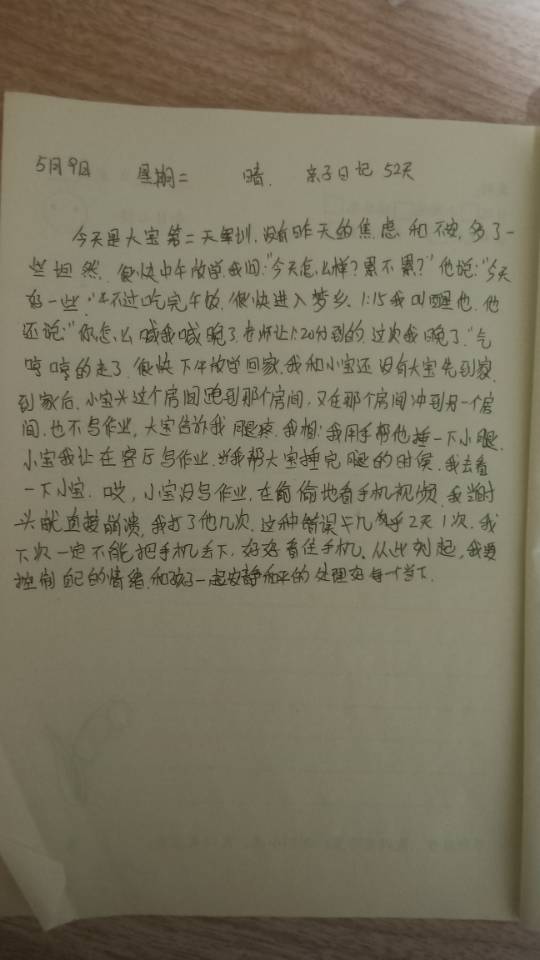 5月9日 星期二 晴. 亲子日记 52天
今天是大宝第二天军训,没有昨天的焦虑和不安,多了一
些坦然.很快中午放学,我问:“今天怎么样?累不累?”他说:“今天
好一些.”不过吃完午饭.很快进入梦乡、1:15我叫醒他.他
还说:“你怎么喊我喊晚了.老师让1:20分到的.这次我晚了.”气
哼哼的走了.很快下午放学回家.我和小宝还没有大宝先到家
到家后.小宝从这个房间跑到那个房间,又在那个房间冲到另一个房
间.也不写作业,大宝告诉我腿疼.我想:我用手帮他捶一下小腿.
小宝我让在客厅写作业.当我帮大宝捶完腿的时候.我去看
一下小宝.哎,小宝没写作业,在偷偷地看手机视频.我当时
头就直接崩溃,我打了他几次.这种错误几乎2天1次.我
下次一定不能把手机丢下.好好看住手机、从此刻起,我要
控制自己的情绪.和孩子一起安静和平的处理好每一个当下.